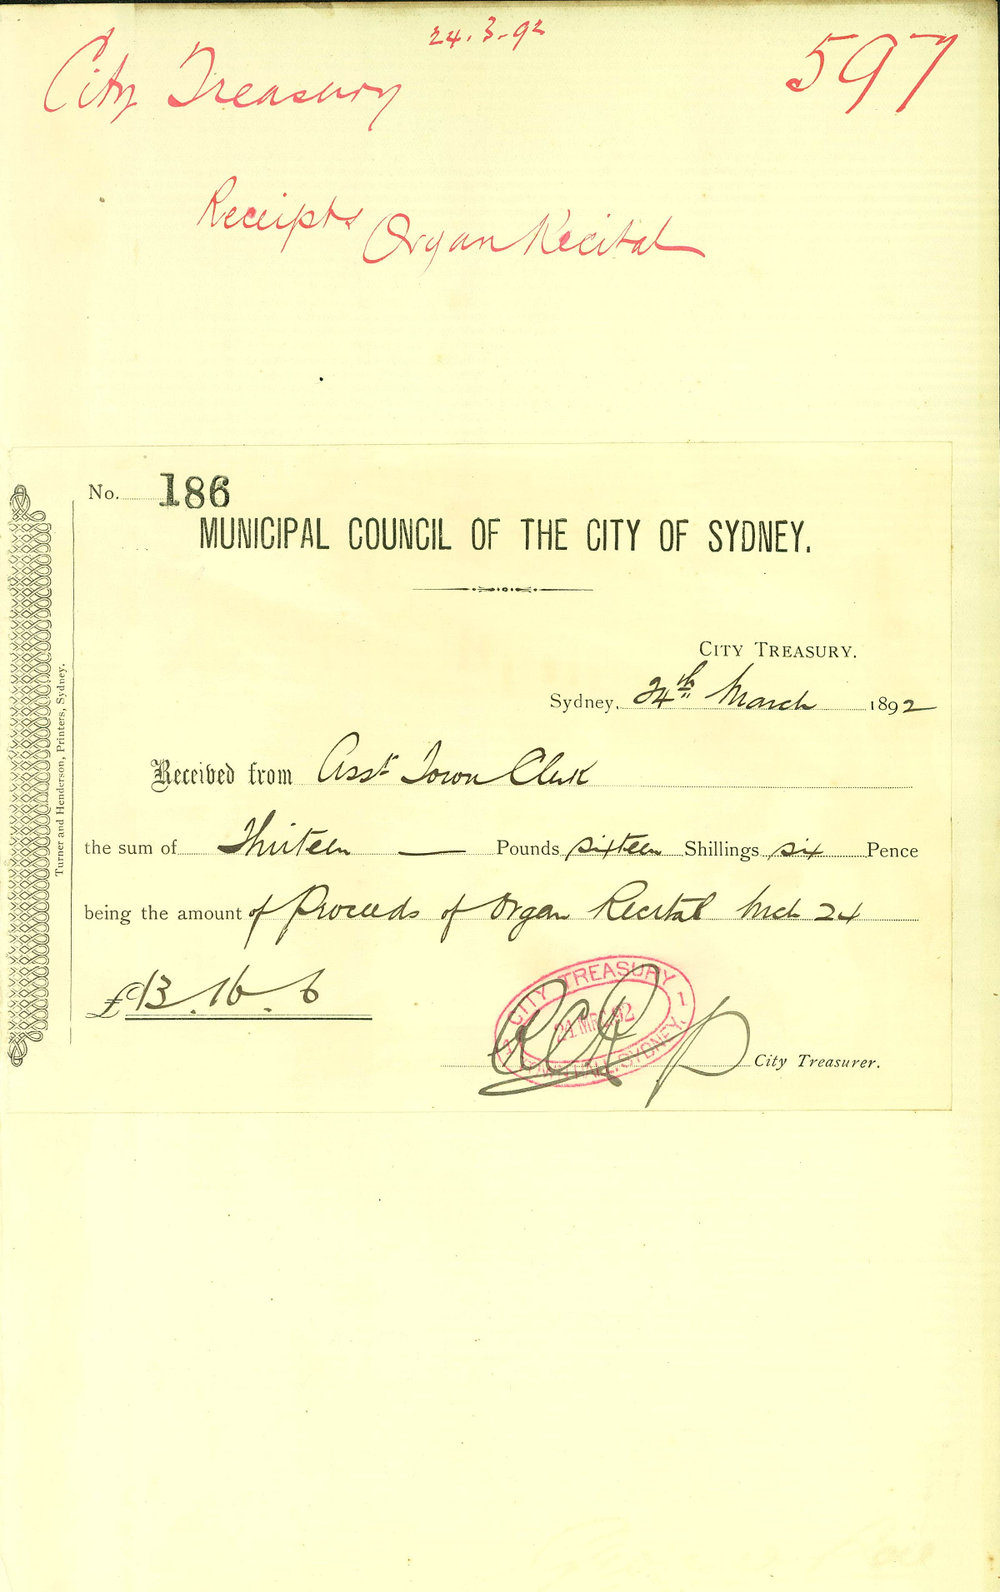 24.3.92
City Treasury
597
Receipts Organ Recital
No. 186
MUNICIPAL COUNCIL OF THE CITY OF SYDNEY.
CITY TREASURY.
Sydney, 24th March 1892
Received from Asst Town Clerk
the sum of Thirteen — Pounds sixteen Shillings six Pence
being the amount of Proceeds of Organ Recital Mch 24
£13.16.6
CITY TREASURY
TOWN HALL, SYDNEY.
City Treasurer.
Turner and Henderson, Printers, Sydney.